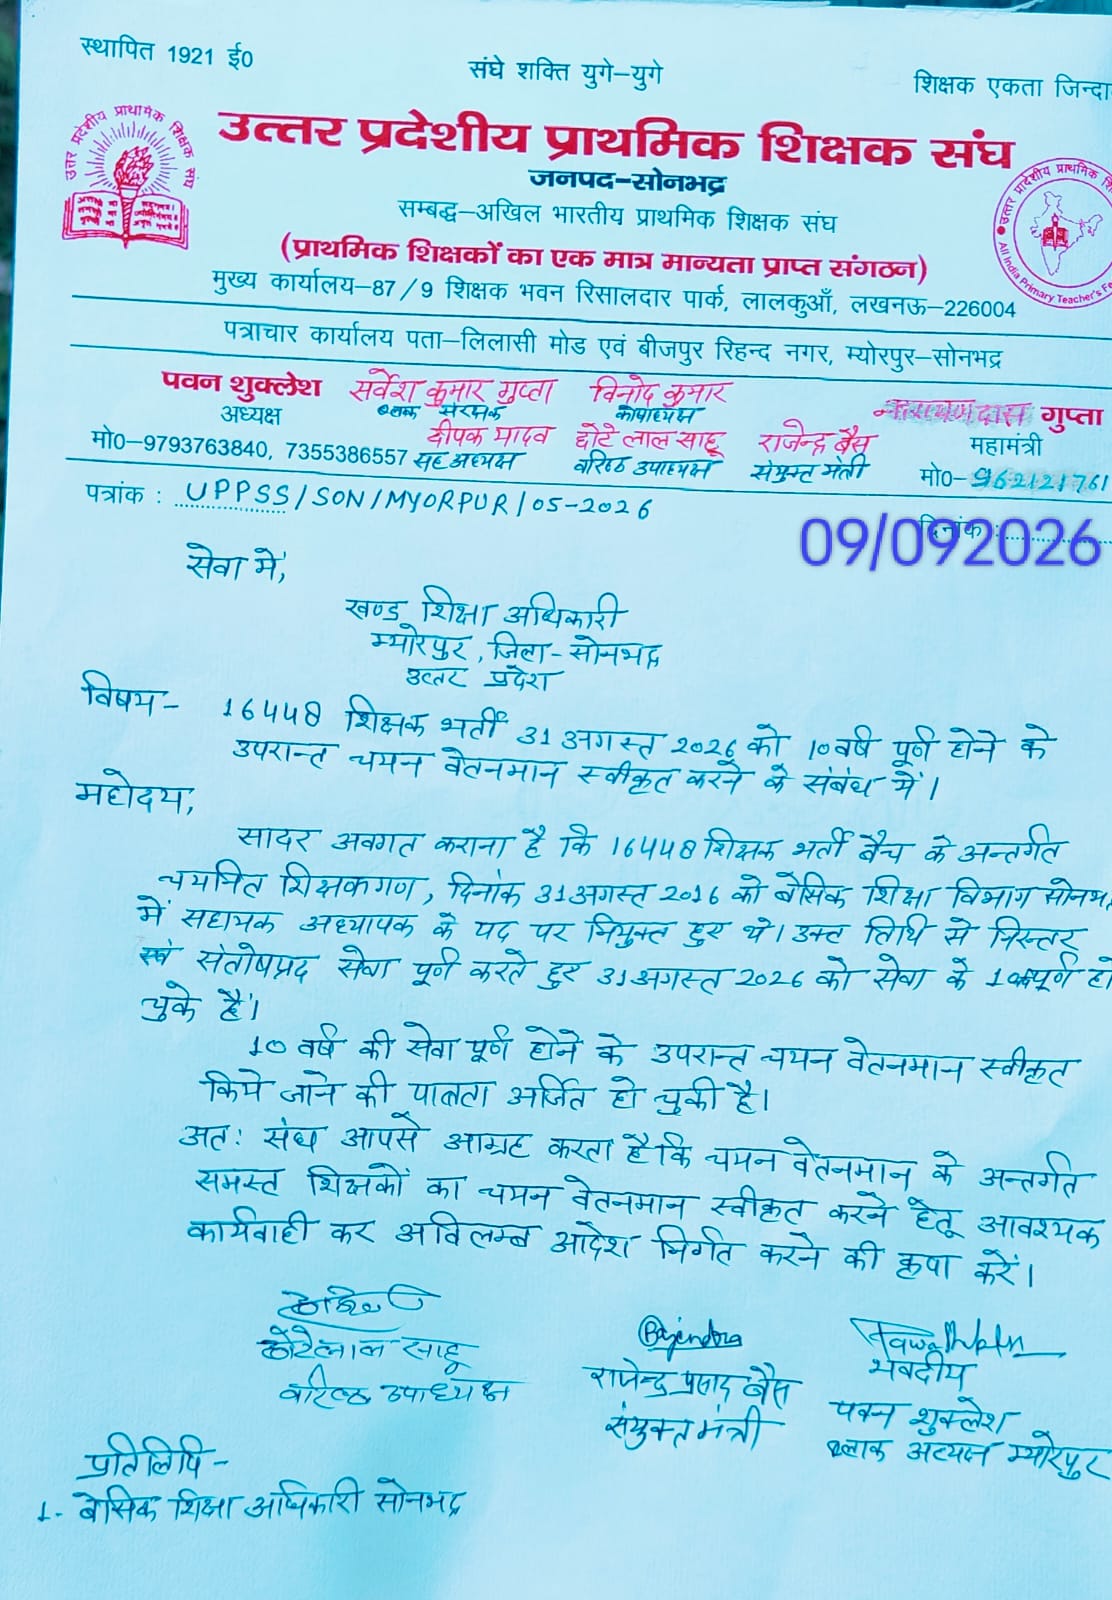 स्थापित 1921 ई0
संघे शक्ति युगे–युगे
शिक्षक एकता जिन्दा
उत्तर प्रदेशीय प्राथमिक शिक्षक संघ
उत्तर प्रदेशीय प्राथमिक शिक्षक संघ
जनपद–सोनभद्र
सम्बद्ध–अखिल भारतीय प्राथमिक शिक्षक संघ
(प्राथमिक शिक्षकों का एक मात्र मान्यता प्राप्त संगठन)
उत्तर प्रदेशीय प्राथमिक शि
All India Primary Teacher's Fe
मुख्य कार्यालय–87/9 शिक्षक भवन रिसालदार पार्क, लालकुआँ, लखनऊ–226004
पत्राचार कार्यालय पता–लिलासी मोड एवं बीजपुर रिहन्द नगर, म्योरपुर–सोनभद्र
पवन शुक्लेश सर्वेश कुमार गुप्ता विनोद कुमार नारायणदास गुप्ता
अध्यक्ष ब्लाक संरक्षक कोषाध्यक्ष महामंत्री
दीपक यादव छोटे लाल साहू राजेन्द्र बैस
मो0–9793763840, 7355386557 सह अध्यक्ष वरिष्ठ उपाध्यक्ष संयुक्त मंत्री मो0–962121761
पत्रांक : UPPSS/SON/MYORPUR/05-2026
दिनांक : 09/092026
सेवा में,
खण्ड शिक्षा अधिकारी
म्योरपुर, जिला-सोनभद्र
उत्तर प्रदेश
विषय- 16448 शिक्षक भर्ती 31 अगस्त 2026 को 10 वर्ष पूर्ण होने के
उपरान्त चयन वेतनमान स्वीकृत करने के संबंध में।
महोदय,
सादर अवगत कराना है कि 16448 शिक्षक भर्ती बैच के अन्तर्गत
चयनित शिक्षकगण, दिनांक 31 अगस्त 2016 को बेसिक शिक्षा विभाग सोनभ
में सहायक अध्यापक के पद पर नियुक्त हुए थे। उक्त तिथि से निरन्तर
एवं संतोषप्रद सेवा पूर्ण करते हुए 31 अगस्त 2026 को सेवा के 10 पूर्ण हो
चुके हैं।
10 वर्ष की सेवा पूर्ण होने के उपरान्त चयन वेतनमान स्वीकृत
किये जाने की पात्रता अर्जित हो चुकी है।
अतः संघ आपसे आग्रह करता है कि चयन वेतनमान के अन्तर्गत
समस्त शिक्षकों का चयन वेतनमान स्वीकृत करने हेतू आवश्यक
कार्यवाही कर अविलम्ब आदेश निर्गत करने की कृपा करें।
छोटेलाल साहू
वरिष्ठ उपाध्यक्ष
Rajendra
राजेन्द्र प्रसाद बैस
संयुक्त मंत्री
भवदीय
पवन शुक्लेश
ब्लाक अध्यक्ष म्योरपुर
प्रतिलिपि -
1- बेसिक शिक्षा अधिकारी सोनभद्र